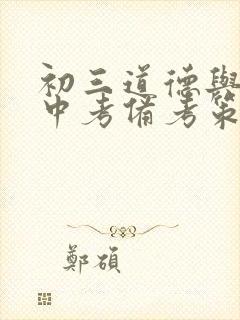 初三道德與
中考備考策
鄭碩